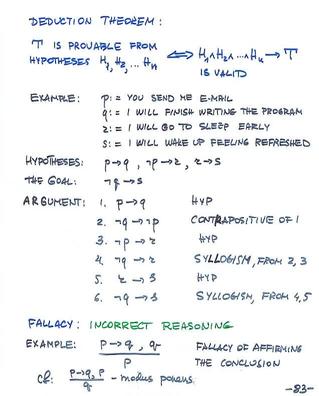 DEDUCTION THEOREM:
T IS PROVABLE FROM
HYPOTHESES H₁, H₂, ... Hₙ ⟺ H₁∧H₂∧...∧Hₙ → T
IS VALID
EXAMPLE: p:= YOU SEND ME E-MAIL
q:= I WILL FINISH WRITING THE PROGRAM
r:= I WILL GO TO SLEEP EARLY
s:= I WILL WAKE UP FEELING REFRESHED
HYPOTHESES: p→q, ¬p→r, r→s
THE GOAL: ¬q→s
ARGUMENT: 1. p→q HYP
2. ¬q→¬p CONTRAPOSITIVE OF 1
3. ¬p→r HYP
4. ¬q→r SYLLOGISM, FROM 2,3
5. r→s HYP
6. ¬q→s SYLLOGISM, FROM 4,5
FALLACY: INCORRECT REASONING
EXAMPLE: p→q, q FALLACY OF AFFIRMING
p THE CONCLUSION
cf: p→q, p
q - modus ponens.
-83-